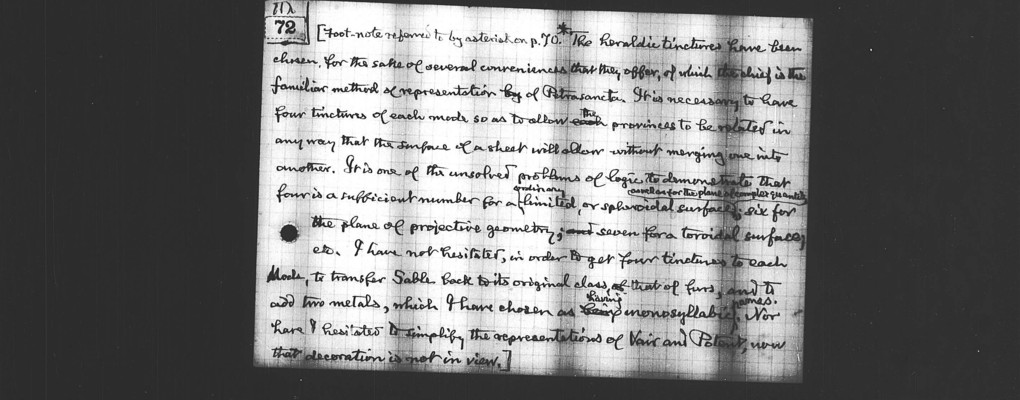 72
[Foot-note referred to by asterisk on p. 70.* The heraldic tinctures have been
chosen, for the sake of several conveniences that they offer, of which the chief is the
familiar method of representation by of Petrasancta. It is necessary to have
four tinctures of each mode so as to allow each the provinces to be related in
any way that the surface of a sheet will allow without merging one into
another. It is one of the unsolved problems of logic to demonstrate that
ordinary as also for the plane of complex quantity
four is a sufficient number for a limited, or spheroidal surface; six for
the plane of projective geometry; and seven for a toroidal surface,
etc. I have not hesitated, in order to get four tinctures to each
Mode, to transfer Sable back to its original class, of that of furs, and to
having names.
add two metals, which I have chosen as being monosyllabic. Nor
have I hesitated to simplify the representations of Vair and Potent, now
that decoration is not in view.]